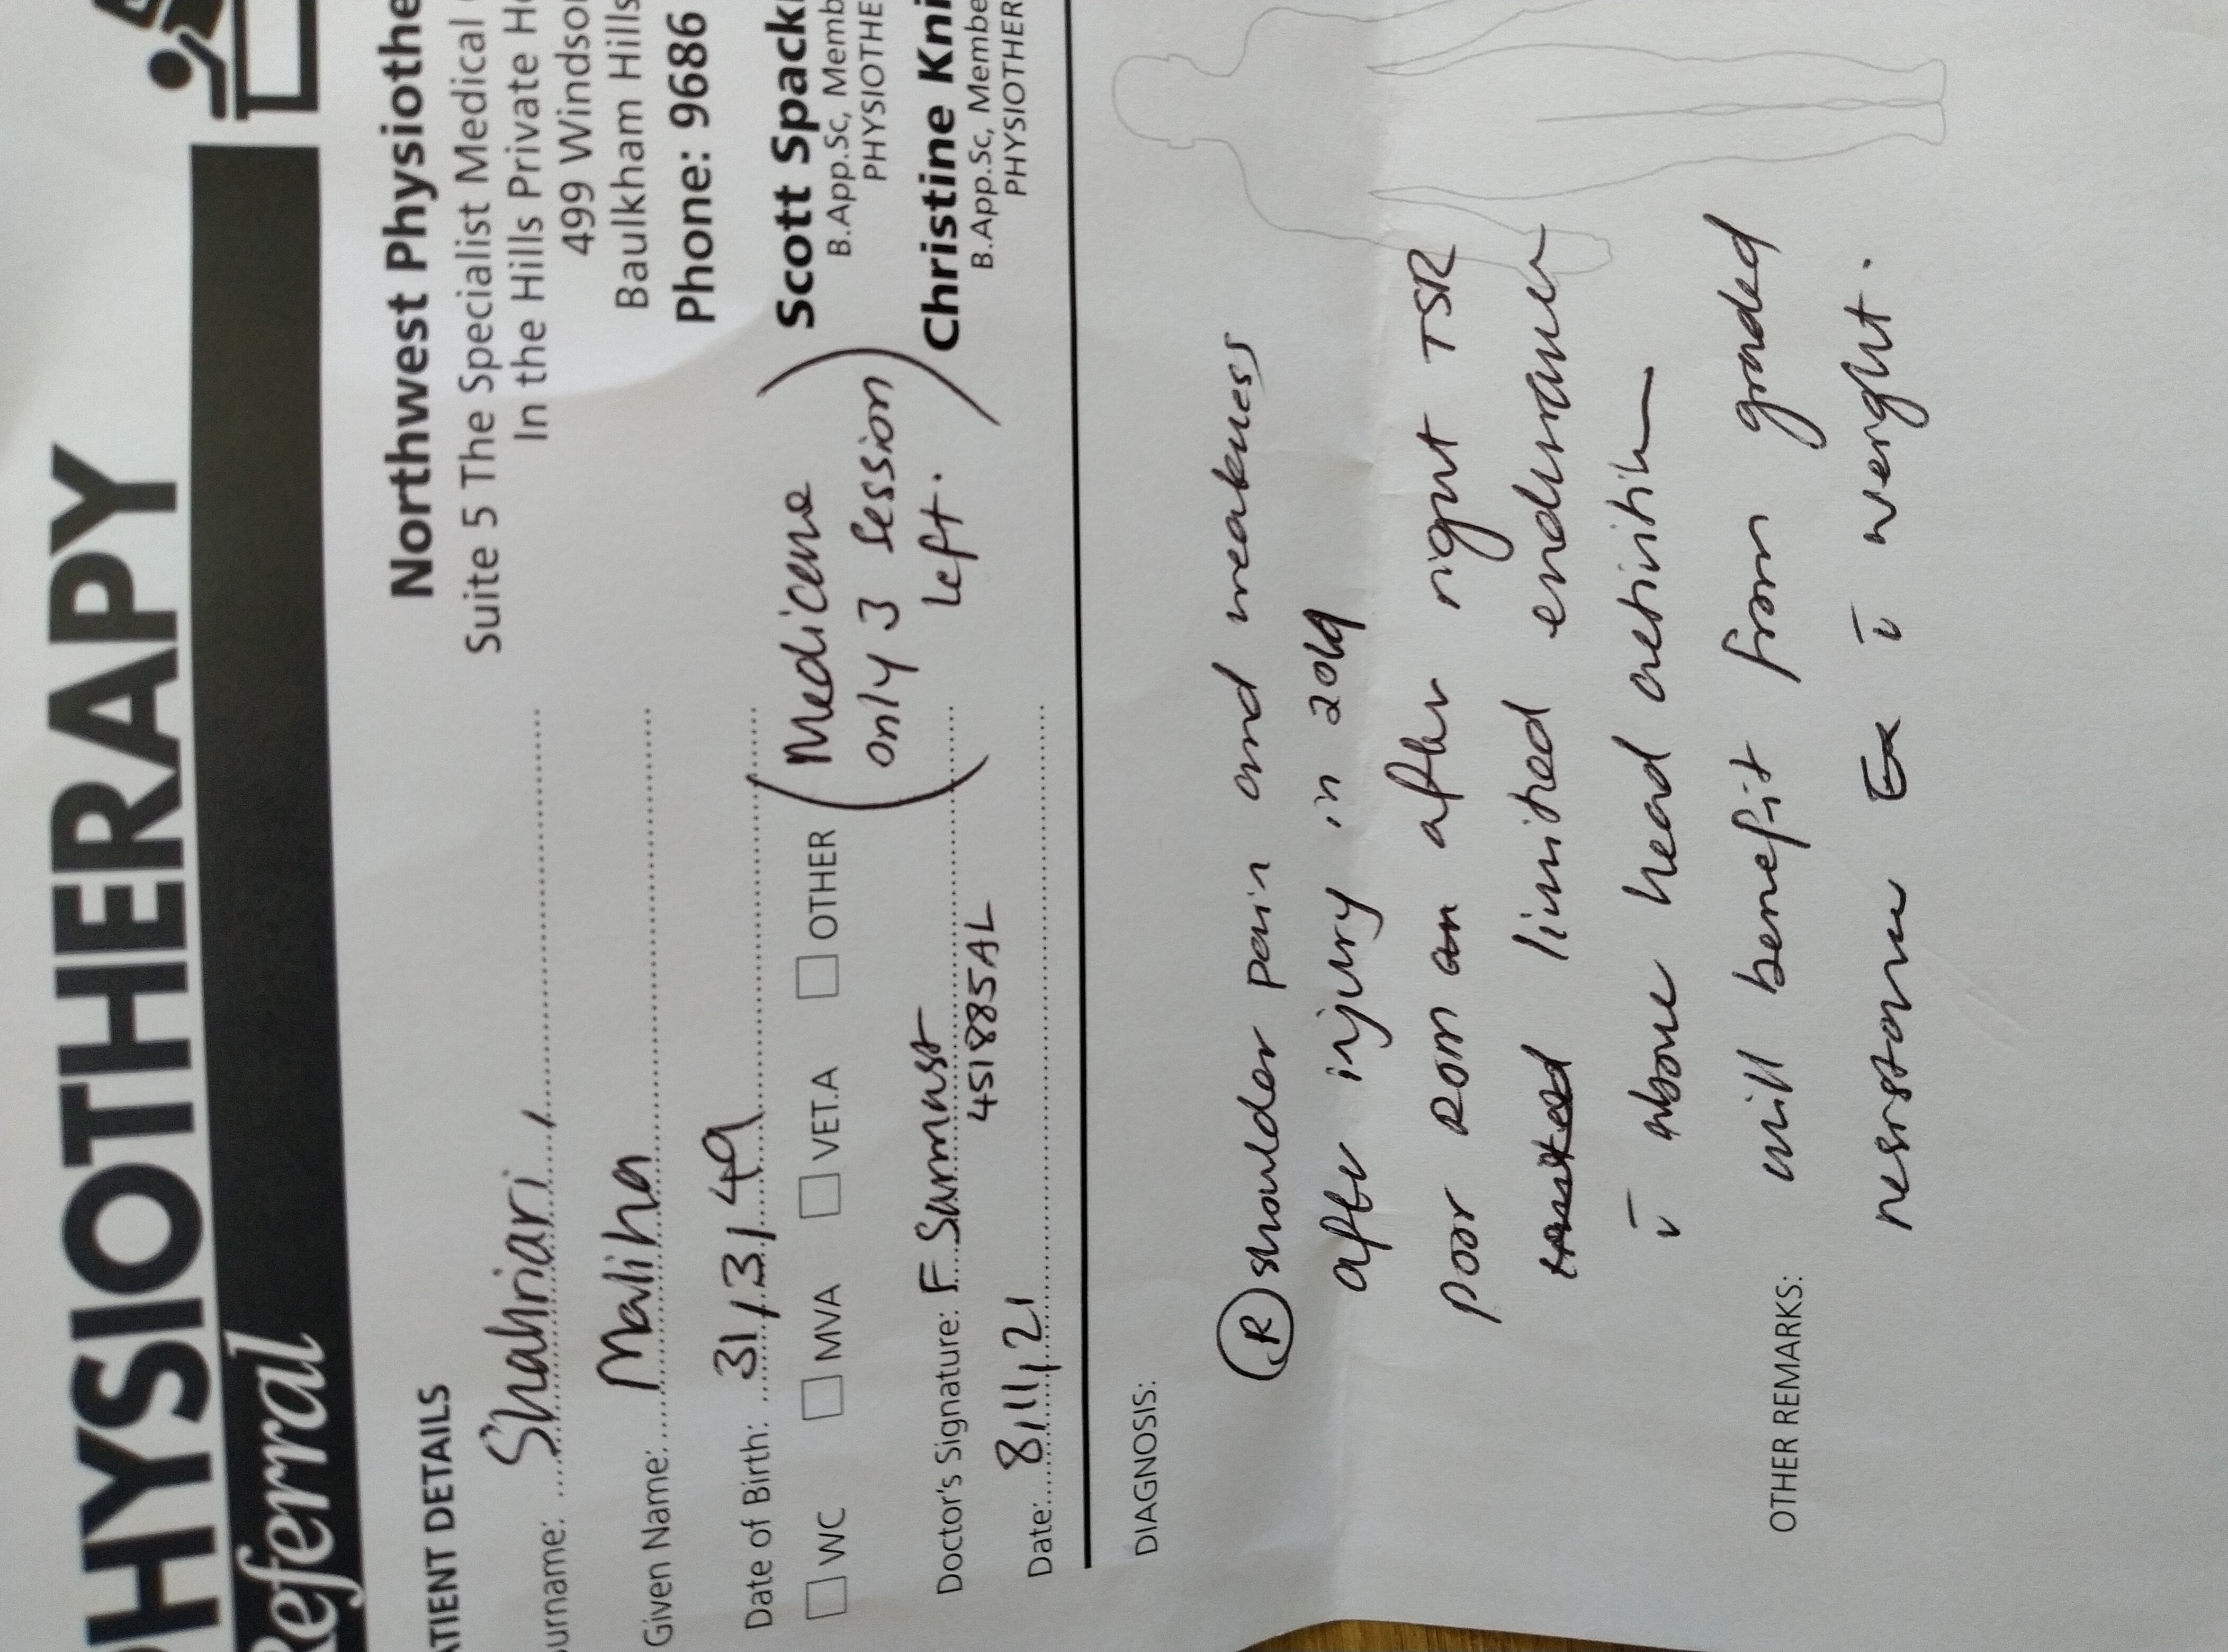 PHYSIOTHERAPY
Referral
Northwest Physiothe
Suite 5 The Specialist Medical
In the Hills Private Ho
499 Windso
Baulkham Hills
Phone: 9686
Scott Spack
B.App.Sc, Memb
PHYSIOTHE
Christine Kni
B.App.Sc, Membe
PHYSIOTHER
ATIENT DETAILS
urname: Shahriari
Given Name: Maliha
Date of Birth: 31/3/49
WC MVA VET.A OTHER
(Medicare
only 3 session
left.)
Doctor's Signature: F Sarmast
451885AL
Date: 8/11/21
DIAGNOSIS:
(R) shoulder pain and weakness
after injury in 2019
poor ROM after right TSR
limited endurance
c̄ above head activities
will benefit from graded
resistance Ex c̄ weight.
OTHER REMARKS: